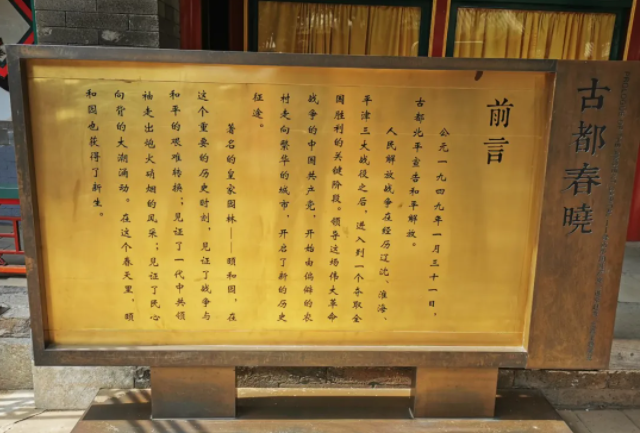 古都春曉
前言
公元一九四九年一月三十一日，
古都北平宣告和平解放。
人民解放战争在经历辽沈、淮海、
平津三大战役之后，进入到一个夺取全
国胜利的关键阶段。领导这场伟大革命
战争的中国共产党，开始由偏僻的农
村走向繁华的城市，开启了新的历史
征途。
著名的皇家园林——颐和园，在
这个重要的历史时刻，见证了战争与
和平的艰难转换；见证了一代中共领
袖走出炮火硝烟的风采；见证了民心
向背的大潮涌动。在这个春天里，颐
和园也获得了新生。